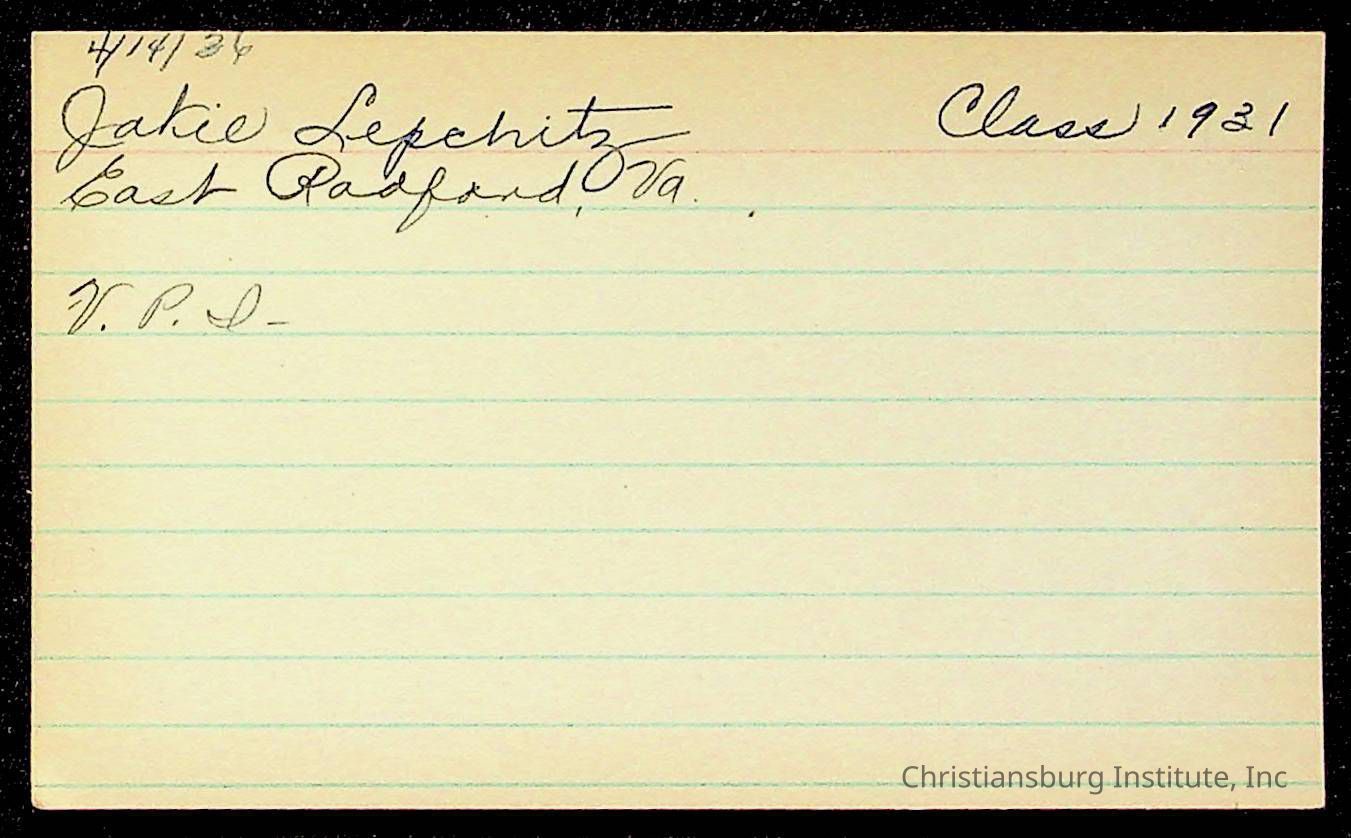 4/14/36
Jakie Lepchitz Class 1931
East Radford, Va.
V. P. I-
Christiansburg Institute, Inc